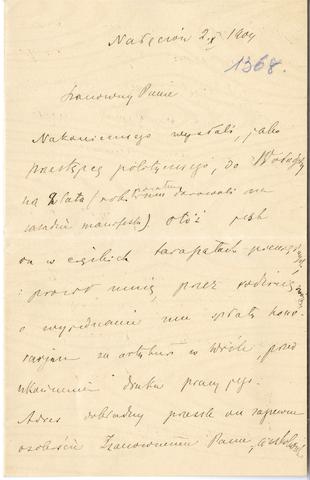 Nałęczów 2 X 1904
1368.
Szanowny Panie
Nakoniecznego wysłali, jako
przestępcę politycznego, do Wołogdy
na 2 lata (rok darowali na
zasadzie manifestu) Otóż jest
on w ciężkich tarapatach pieniężnych
i prosił mnię, przez rodzinę
o wyjednanie mu spłaty hono-
rarjum za artykuł w Wiśle, przed
ukończeniem druku pracy jego.
Adres dokładny prześle on zapewne
osobiście Szanownemu Panu,